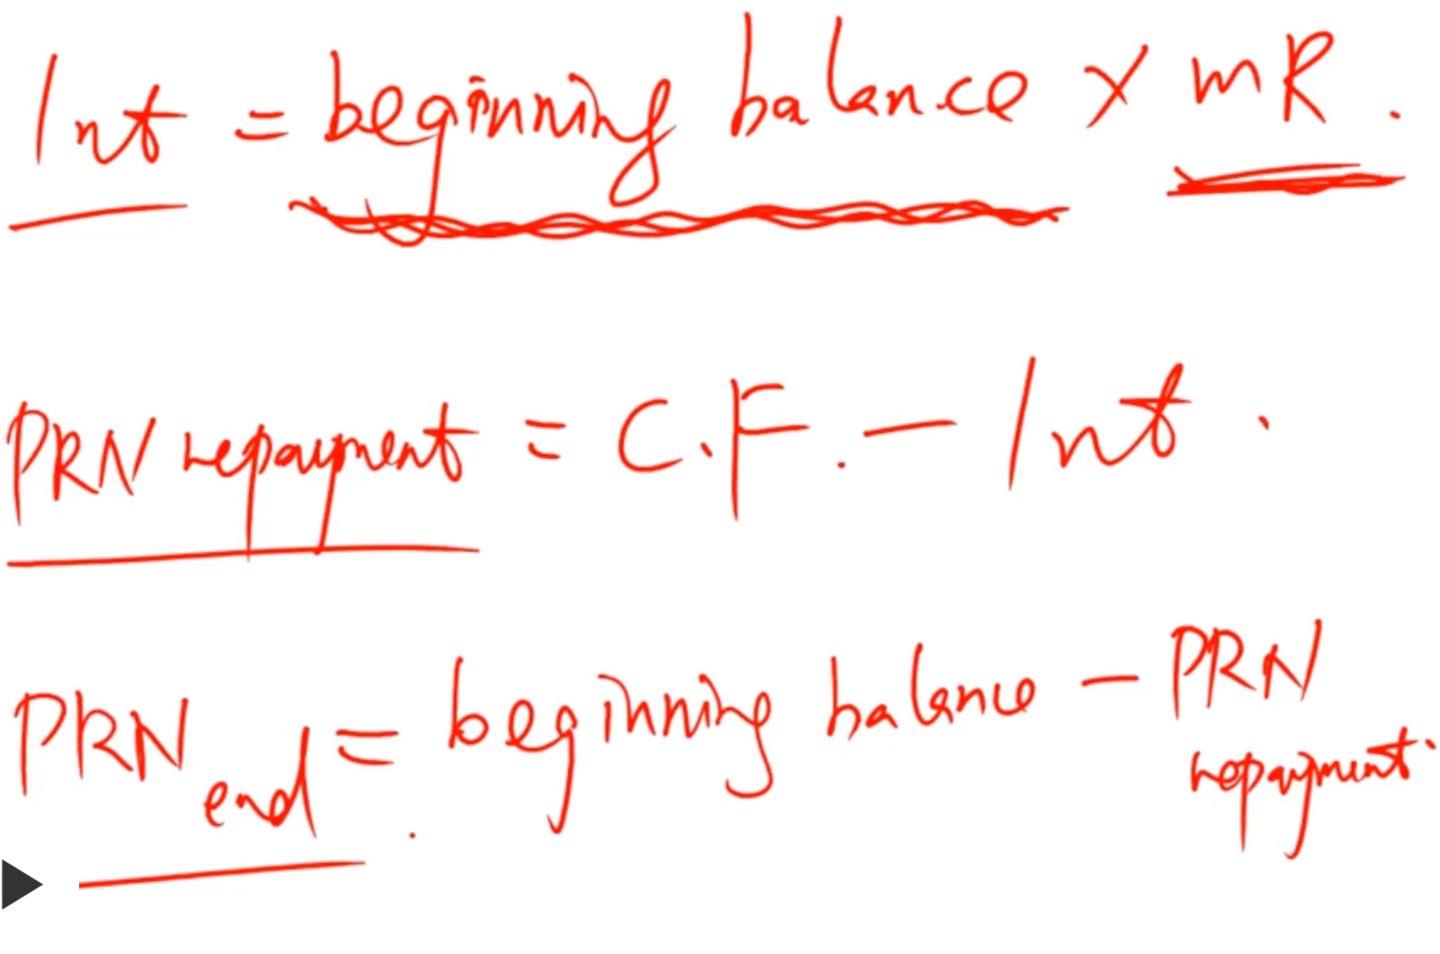 Int = beginning balance × mR.
PRN repayment = C.F. - Int.
PRN end = beginning balance - PRN
repayment.